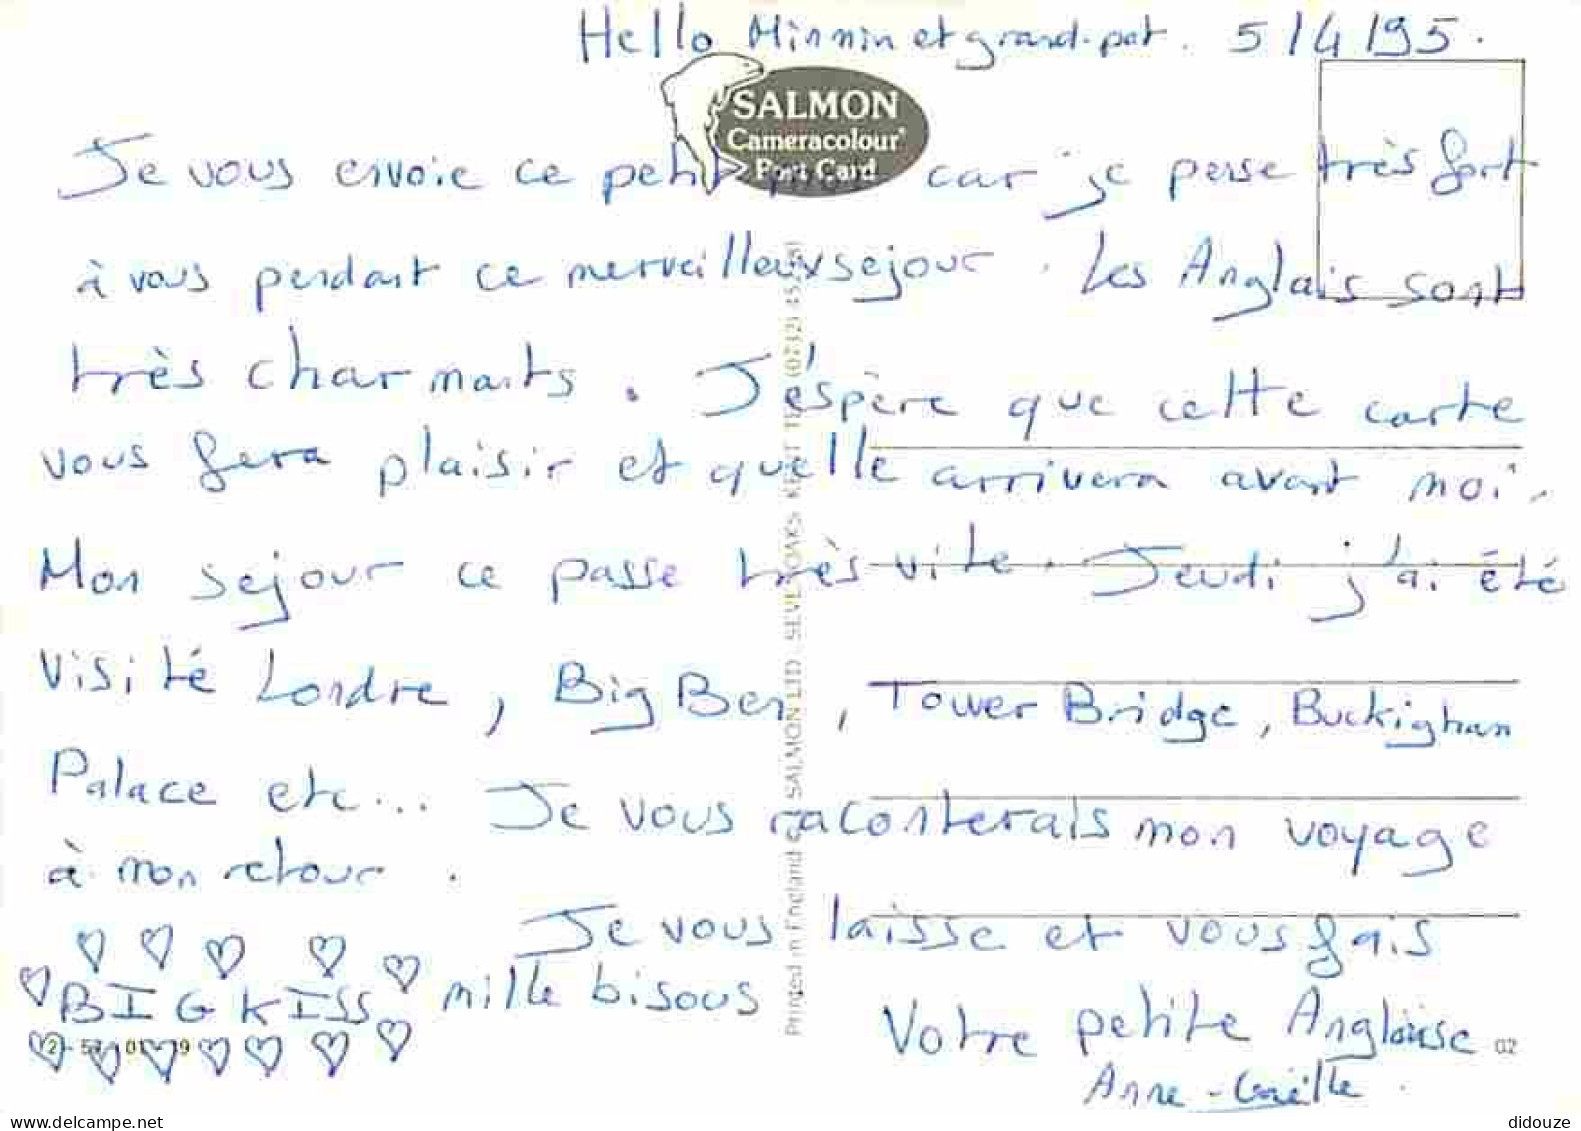 Hello Minmin et grand-pat. 5/4/95.
SALMON
Cameracolour
Post Card
Je vous envoie ce petit car je pense très fort
à vous pendant ce merveilleux sejour. Les Anglais sont
très charmants. J'éspère que cette carte
vous fera plaisir et quelle arrivera avant moi.
Mon sejour ce passe très vite. Jeudi j'ai été
visité Londre, Big Ben, Tower Bridge, Buckighan
Palace etc... Je vous raconterais mon voyage
à mon retour.
Je vous laisse et vous fais
mille bisous
BIG KISS
Votre petite Anglaise
Anne-Gaëlle.
Printed in England SALMON LTD. SEVENOAKS KENT (0732)
02
didouze